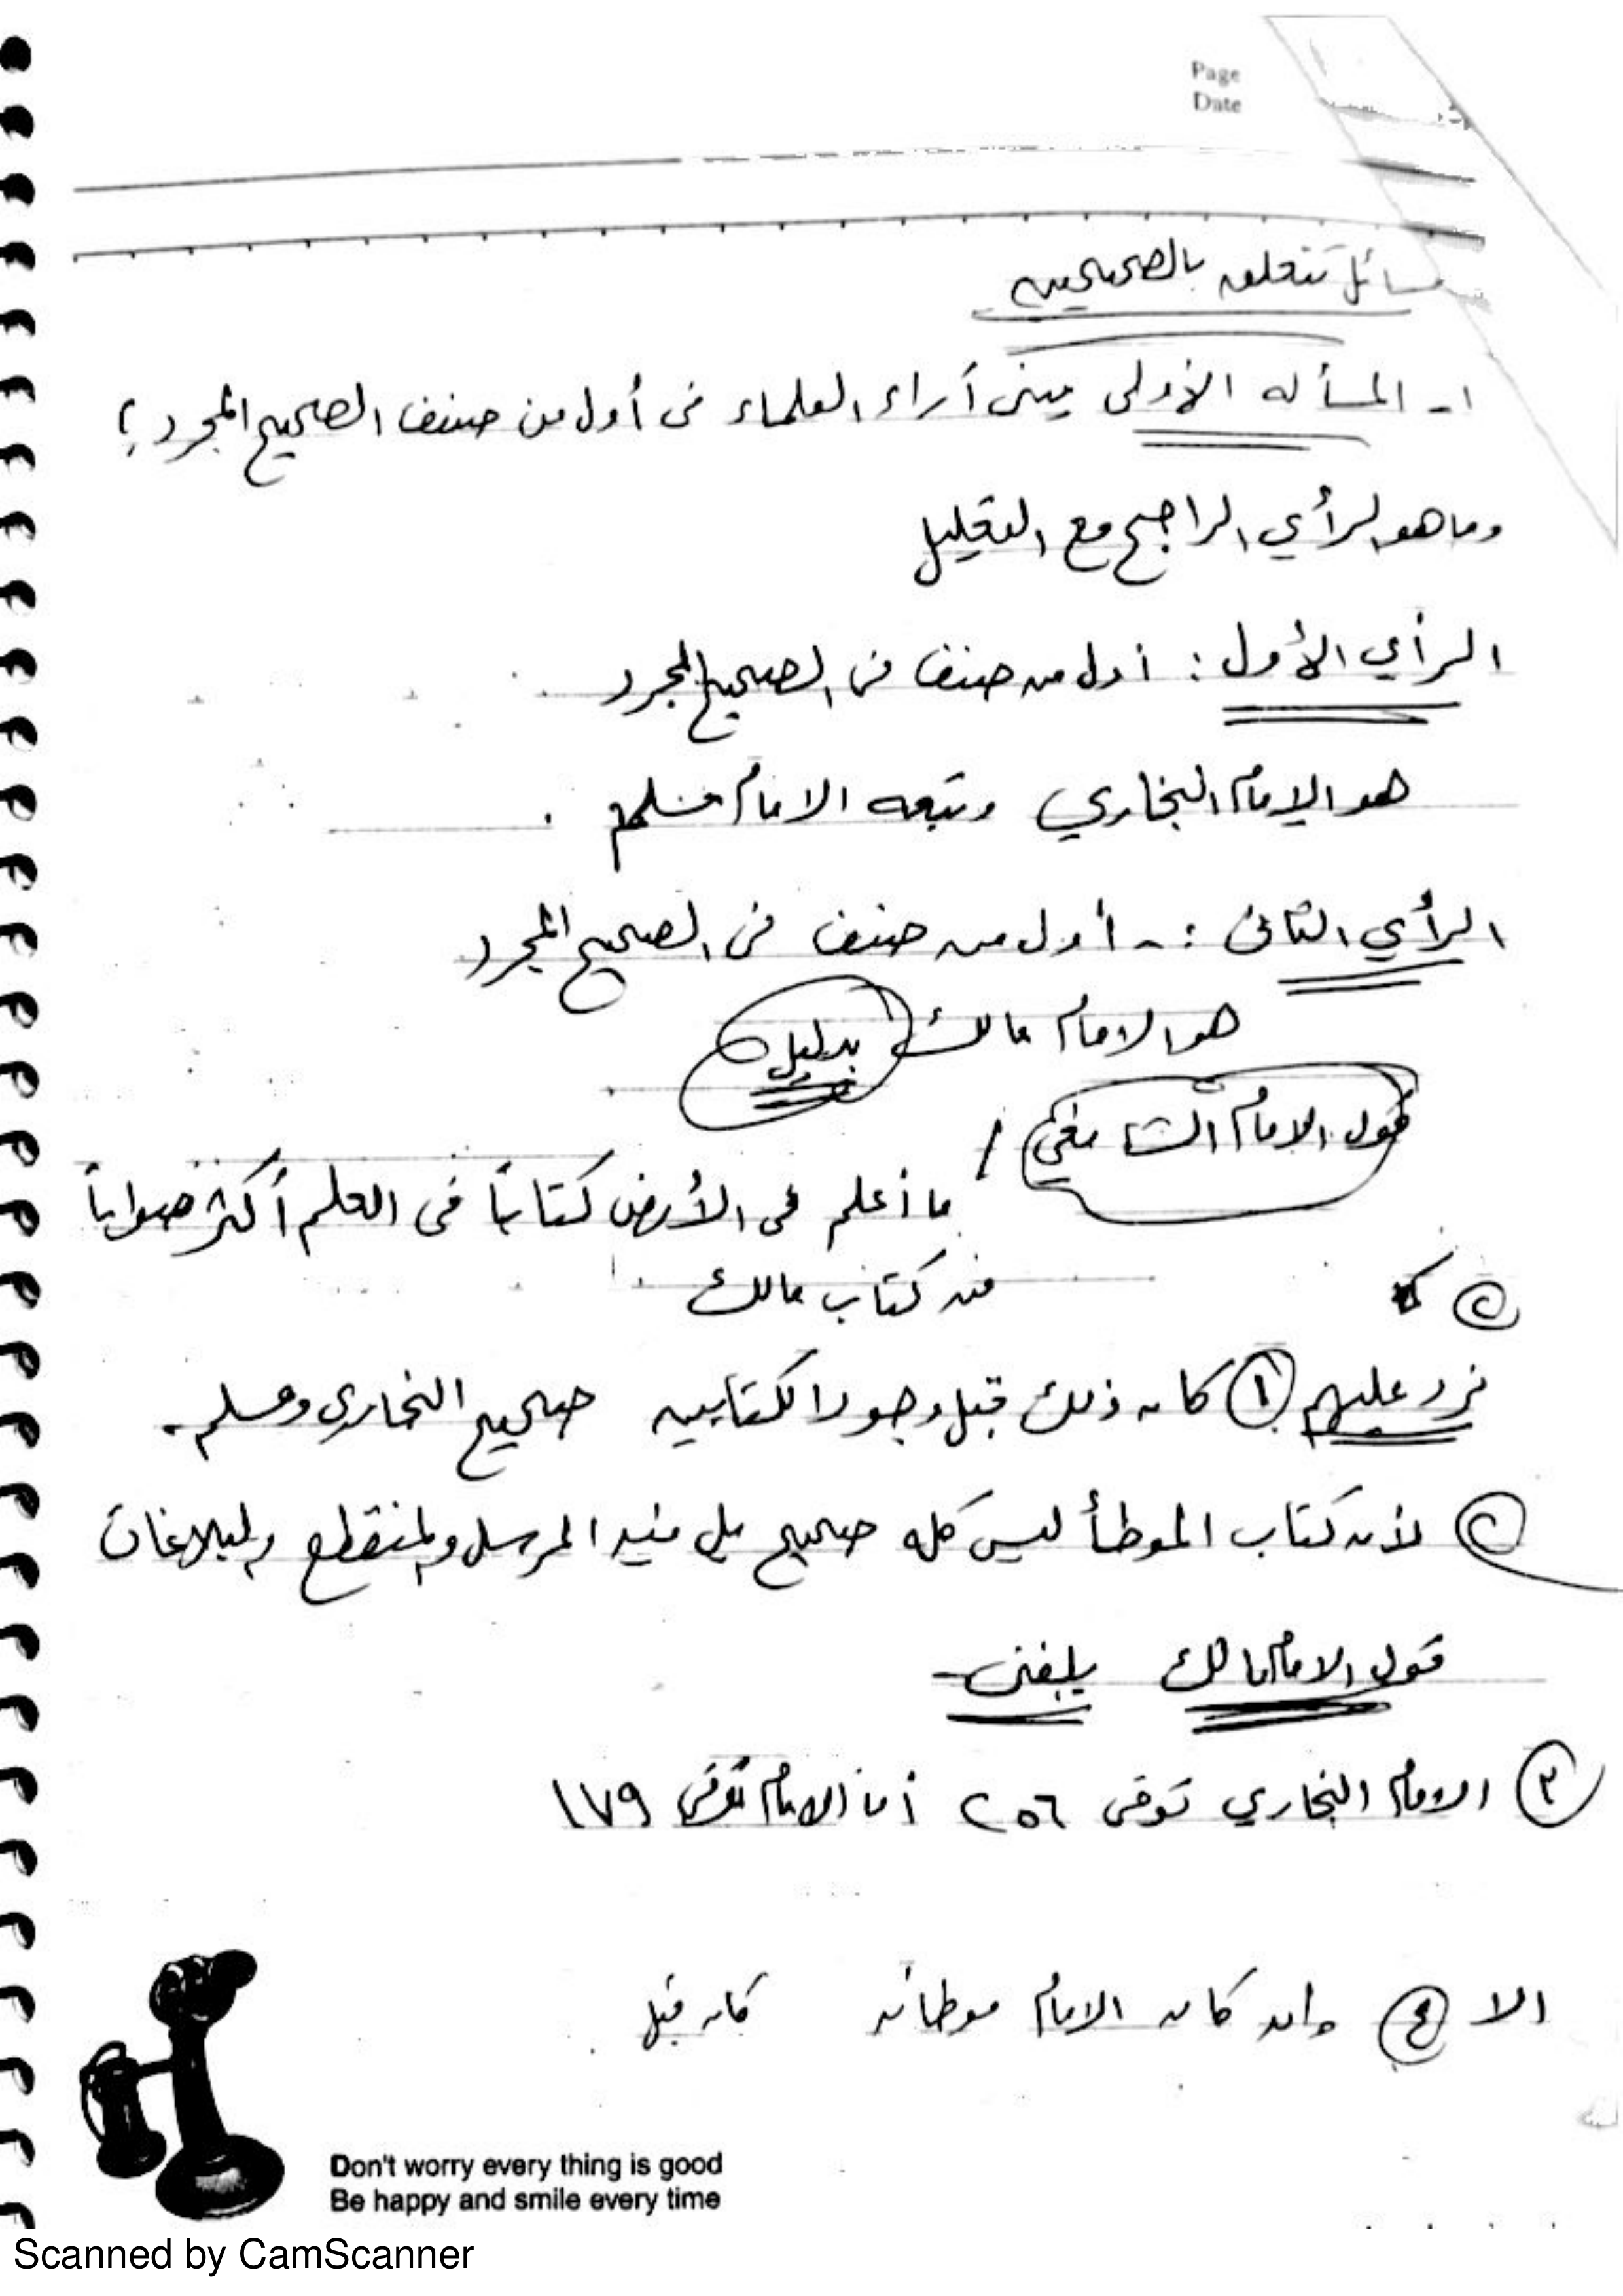 Page
Date
مسائل تتعلق بالصحيحين
١- المسأله الأولى بيني أراء العلماء في أول من صنف الصحيح المجرد؟
وما هو الرأي الراجح مع التعليل
الرأي الأول : أول من صنف في الصحيح المجرد
هو الإمام البخاري وتبعه الامام مسلم .
الرأي الثاني :- أول من صنف في الصحيح المجرد
هو الامام مالك بدليل
قول الامام الشافعي /
ما أعلم في الأرض كتاباً في العلم أكثر صواباً
من كتاب مالك
نرد عليهم ① كان ذلك قبل وجود الكتابين صحيح البخاري ومسلم .
② لأن كتاب الموطأ ليس كله صحيح بل فيه المرسل والمنقطع والبلاغات
قول الامام مالك بلغني
③ الامام البخاري توفى ٢٥٦ أما الامام توفى ١٧٩
الا ④ وان كان الامام موطأه كان قبل
Don't worry every thing is good
Be happy and smile every time
Scanned by CamScanner